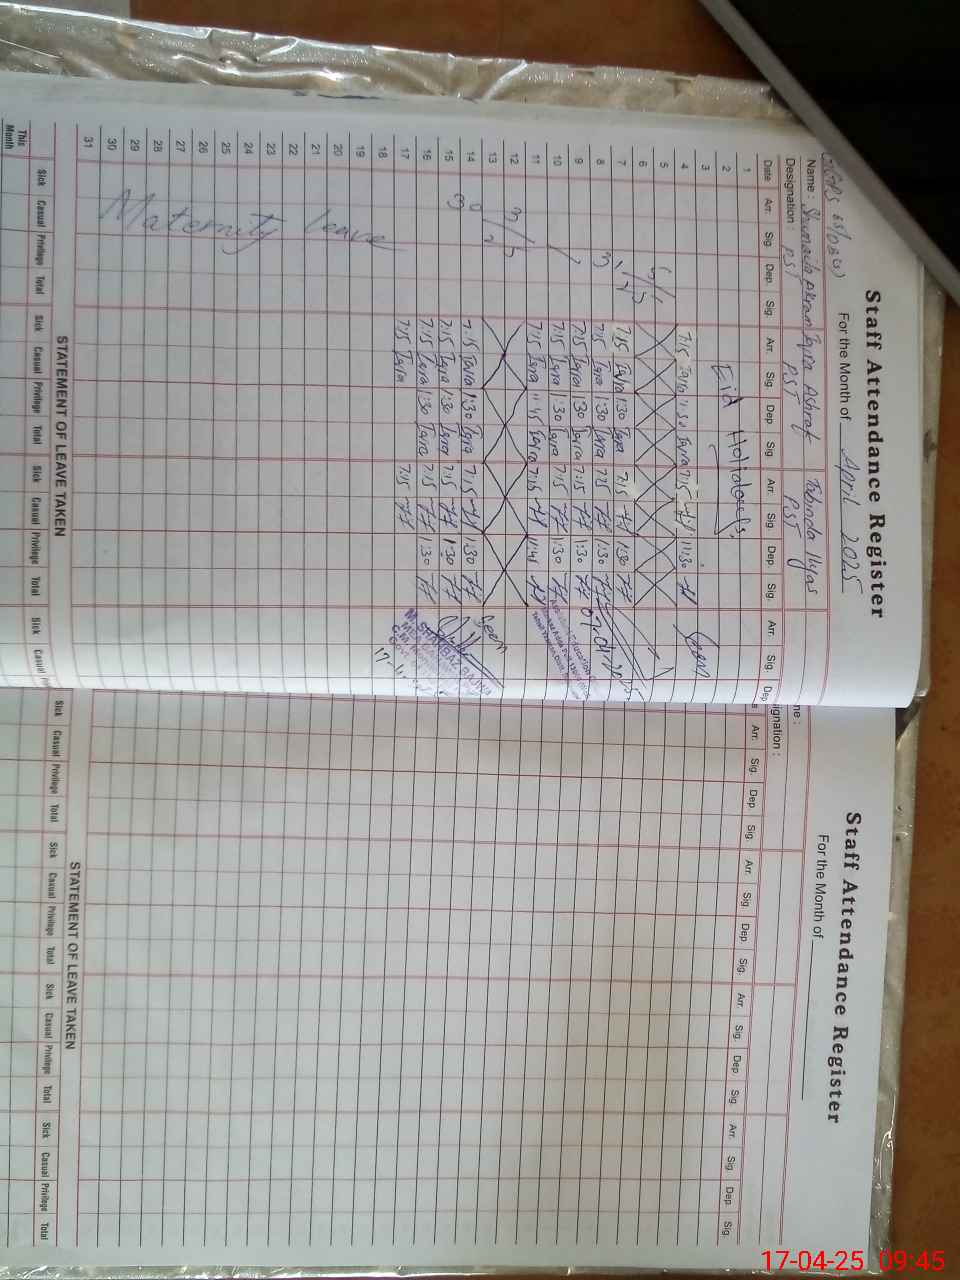 Staff Attendance Register
For the Month of April 2025
Name : Shumaila Akram Iqra Ashraf Tabinda Ilyas
Designation : PST PST PST
Date Arr. Sig. Dep. Sig. Arr. Sig. Dep. Sig. Arr. Sig. Dep. Sig. Arr. Sig. Dep
1
2 Eid Holidays.
3
4 7:15 Iqra 11:30 Iqra 7:15 11:30 Seen
5
6
7 7:15 Iqra 1:30 Iqra 7:15 1:30
8 7:15 Iqra 1:30 Iqra 7:15 1:30 07.04.2025
9 7:15 Iqra 1:30 Iqra 7:15 1:30
10 7:15 Iqra 1:30 Iqra 7:15 1:30
11 7:15 Iqra 11:45 Iqra 7:15 11:45
12
13
14 7:15 Iqra 1:30 Iqra 7:15 1:30 Seen
15 7:15 Iqra 1:30 Iqra 7:15 1:30
16 7:15 Iqra 1:30 Iqra 7:15 1:30
17 7:15 Iqra 7:15
M. SHAHBAZ BAJWA
18
19
20
21
22
23
24
25
26
27
28
29
30
31
Maternity leave
STATEMENT OF LEAVE TAKEN
Sick Casual Privilege Total Sick Casual Privilege Total Sick Casual Privilege Total Sick Casual
This Month
Staff Attendance Register
For the Month of
me :
ignation :
Arr. Sig. Dep. Sig. Arr. Sig. Dep. Sig. Arr. Sig. Dep. Sig. Arr. Sig. Dep. Sig.
STATEMENT OF LEAVE TAKEN
Sick Casual Privilege Total Sick Casual Privilege Total Sick Casual Privilege Total Sick Casual Privilege Total
17-04-25 09:45